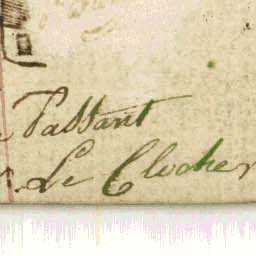 Passant
Le Clocher